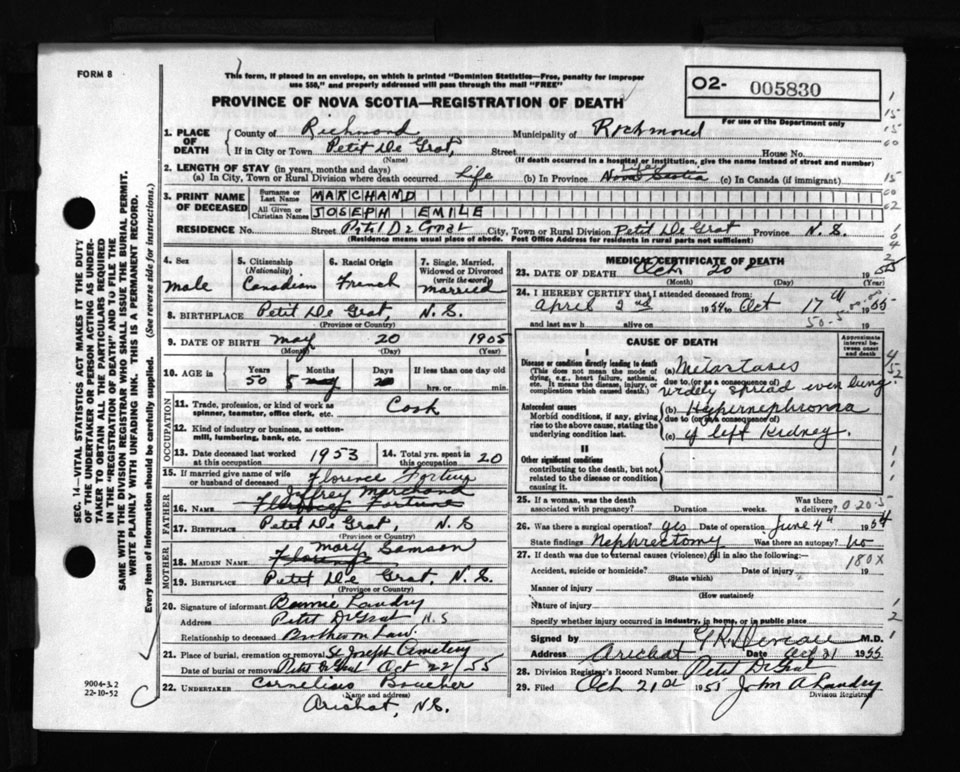 FORM 8
This form, if placed in an envelope, on which is printed "Dominion Statistics—Free, penalty for improper
use $50," and properly addressed will pass through the mail "FREE"
O2- 005830
For use of the Department only
PROVINCE OF NOVA SCOTIA—REGISTRATION OF DEATH
1. PLACE OF DEATH County of Richmond Municipality of Richmond
If in City or Town Petit De Grat, Street House No.
(Name) (If death occurred in a hospital or institution, give the name instead of street and number)
2. LENGTH OF STAY (in years, months and days)
(a) In City, Town or Rural Division where death occurred life (b) In Province Nova Scotia (c) In Canada (if immigrant)
3. PRINT NAME OF DECEASED Surname or Last Name MARCHAND
All Given or Christian Names JOSEPH EMILE
RESIDENCE No. Street Petit De Grat City, Town or Rural Division Petit De Grat Province N.S.
(Residence means usual place of abode. Post Office Address for residents in rural parts not sufficient)
4. Sex male
5. Citizenship (Nationality) Canadian
6. Racial Origin French
7. Single, Married, Widowed or Divorced (write the word) married
8. BIRTHPLACE Petit De Grat, N.S.
(Province or Country)
9. DATE OF BIRTH May 20 1905
(Month) (Day) (Year)
10. AGE in Years Months Days If less than one day old
50 5 may 20 hrs. or min.
OCCUPATION
11. Trade, profession, or kind of work as spinner, teamster, office clerk, etc. Cook
12. Kind of industry or business, as cotten-mill, lumbering, bank, etc.
13. Date deceased last worked at this occupation 1953 14. Total yrs. spent in this occupation 20
15. If married give name of wife or husband of deceased Florence Fortune
FATHER
16. Name Jeffrey Marchand
17. Birthplace Petit De Grat, N.S
(Province or Country)
MOTHER
18. MAIDEN NAME Florence Mary Samson
19. BIRTHPLACE Petit De Grat, N.S.
(Province or Country)
20. Signature of informant Landry
Address Petit De Grat N.S
Relationship to deceased Brother in Law.
21. Place of burial, cremation or removal St Joseph Cemetery
Date of burial or removal Petit De Grat Oct 22/55
22. UNDERTAKER Cornelius Boucher
(Name and address)
Arichat, N.S.
MEDICAL CERTIFICATE OF DEATH
23. DATE OF DEATH Oct 20 1955
(Month) (Day)
24. I HEREBY CERTIFY that I attended deceased from:
April 2nd 1954 to Oct 17th 1955
and last saw h alive on 19
CAUSE OF DEATH
Approximate interval between onset and death
I
Disease or condition directly leading to death
(This does not mean the mode of dying, e.g., heart failure, asthenia, etc. It means the disease, injury, or complication which caused death.)
(a) Metastases
due to (or as a consequence of)
widely spread even lung.
Antecedent causes
Morbid conditions, if any, giving rise to the above cause, stating the underlying condition last.
(b) Hypernephroma
due to (or as a consequence of)
(c) of left kidney.
II
Other significant conditions
contributing to the death, but not related to the disease or condition causing it.
25. If a woman, was the death associated with pregnancy? Duration weeks. Was there a delivery?
26. Was there a surgical operation? yes Date of operation June 4th 1954
State findings Nephrectomy Was there an autopsy? No
180X
27. If death was due to external causes (violence) fill in also the following:
Accident, suicide or homicide? Date of injury 19
(State which)
Manner of injury
(How sustained)
Nature of injury
Specify whether injury occurred in industry, in home, or in public place
Signed by M.D.
Address Arichat Date Oct 21 1955
28. Division Registrar's Record Number Petit De Grat
29. Filed Oct 21st 1955 John A Landry
Division Registrar
SEC. 14—VITAL STATISTICS ACT MAKES IT THE DUTY
OF THE UNDERTAKER OR PERSON ACTING AS UNDER-
TAKER TO OBTAIN ALL THE PARTICULARS REQUIRED
IN THE "REGISTRATION OF DEATH" AND TO FILE THE
SAME WITH THE DIVISION REGISTRAR WHO SHALL ISSUE THE BURIAL PERMIT.
WRITE PLAINLY WITH UNFADING INK. THIS IS A PERMANENT RECORD.
Every item of information should be carefully supplied. (See reverse side for instructions.)
9004-3.2
22-10-52